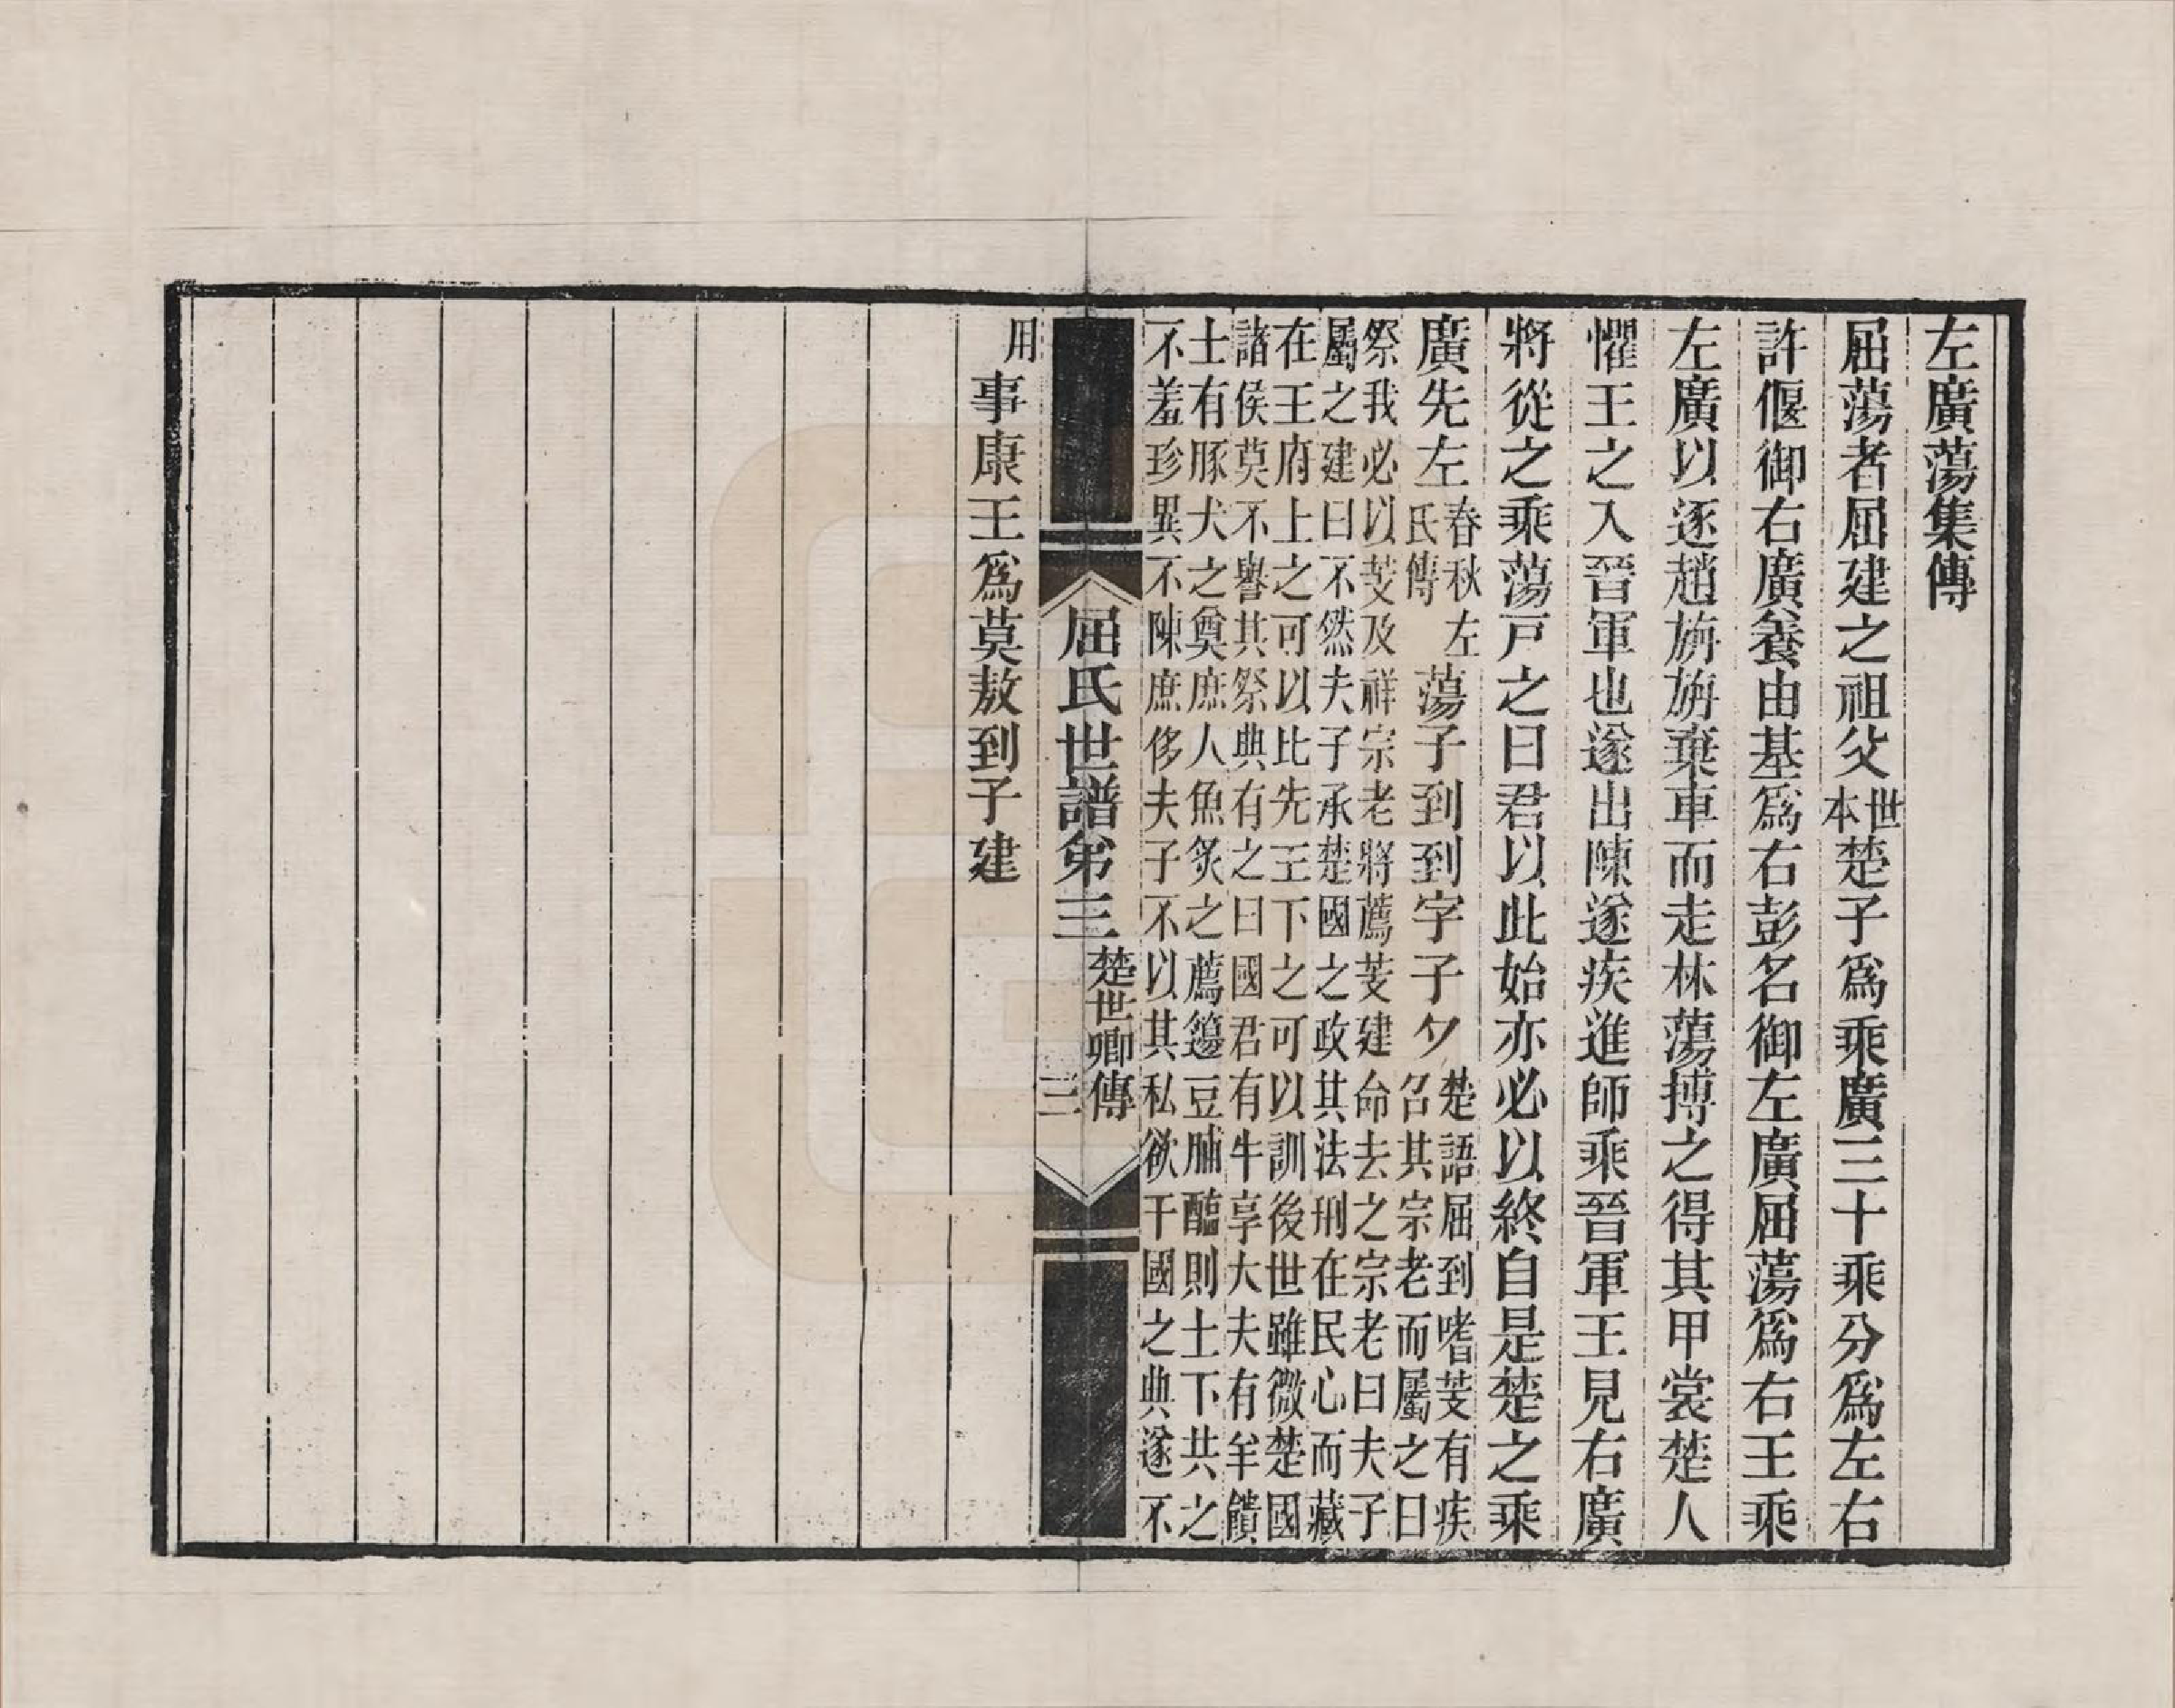 左廣蕩集傳
屈蕩者屈建之祖父世本楚子爲乘廣三十乘分爲左右
許偃御右廣養由基爲右彭名御左廣屈蕩爲右王乘
左廣以逐趙旃旃棄車而走林蕩搏之得其甲裳楚人
懼王之入晉軍也遂出陳遂疾進師乘晉軍王見右廣
將從之乘蕩戸之曰君以此始亦必以終自是楚之乘
廣先左春秋左
氏傳蕩子到到字子夕楚語屈到嗜芰有疾
召其宗老而屬之曰
祭我必以芰及祥宗老將薦芰建命去之宗老曰夫子
屬之建曰不然夫子承楚國之政其法刑在民心而藏
在王府上之可以比先王下之可以訓後世雖微楚國
諸侯莫不譽其祭典有之曰國君有牛享大夫有羊饋
士有豚犬之奠庶人魚炙之薦籩豆脯醢則士下共之
不羞珍異不陳庶侈夫子不以其私欲干國之典遂不
屈氏世譜弟三
楚世卿傳
三
用
事康王爲莫敖到子建